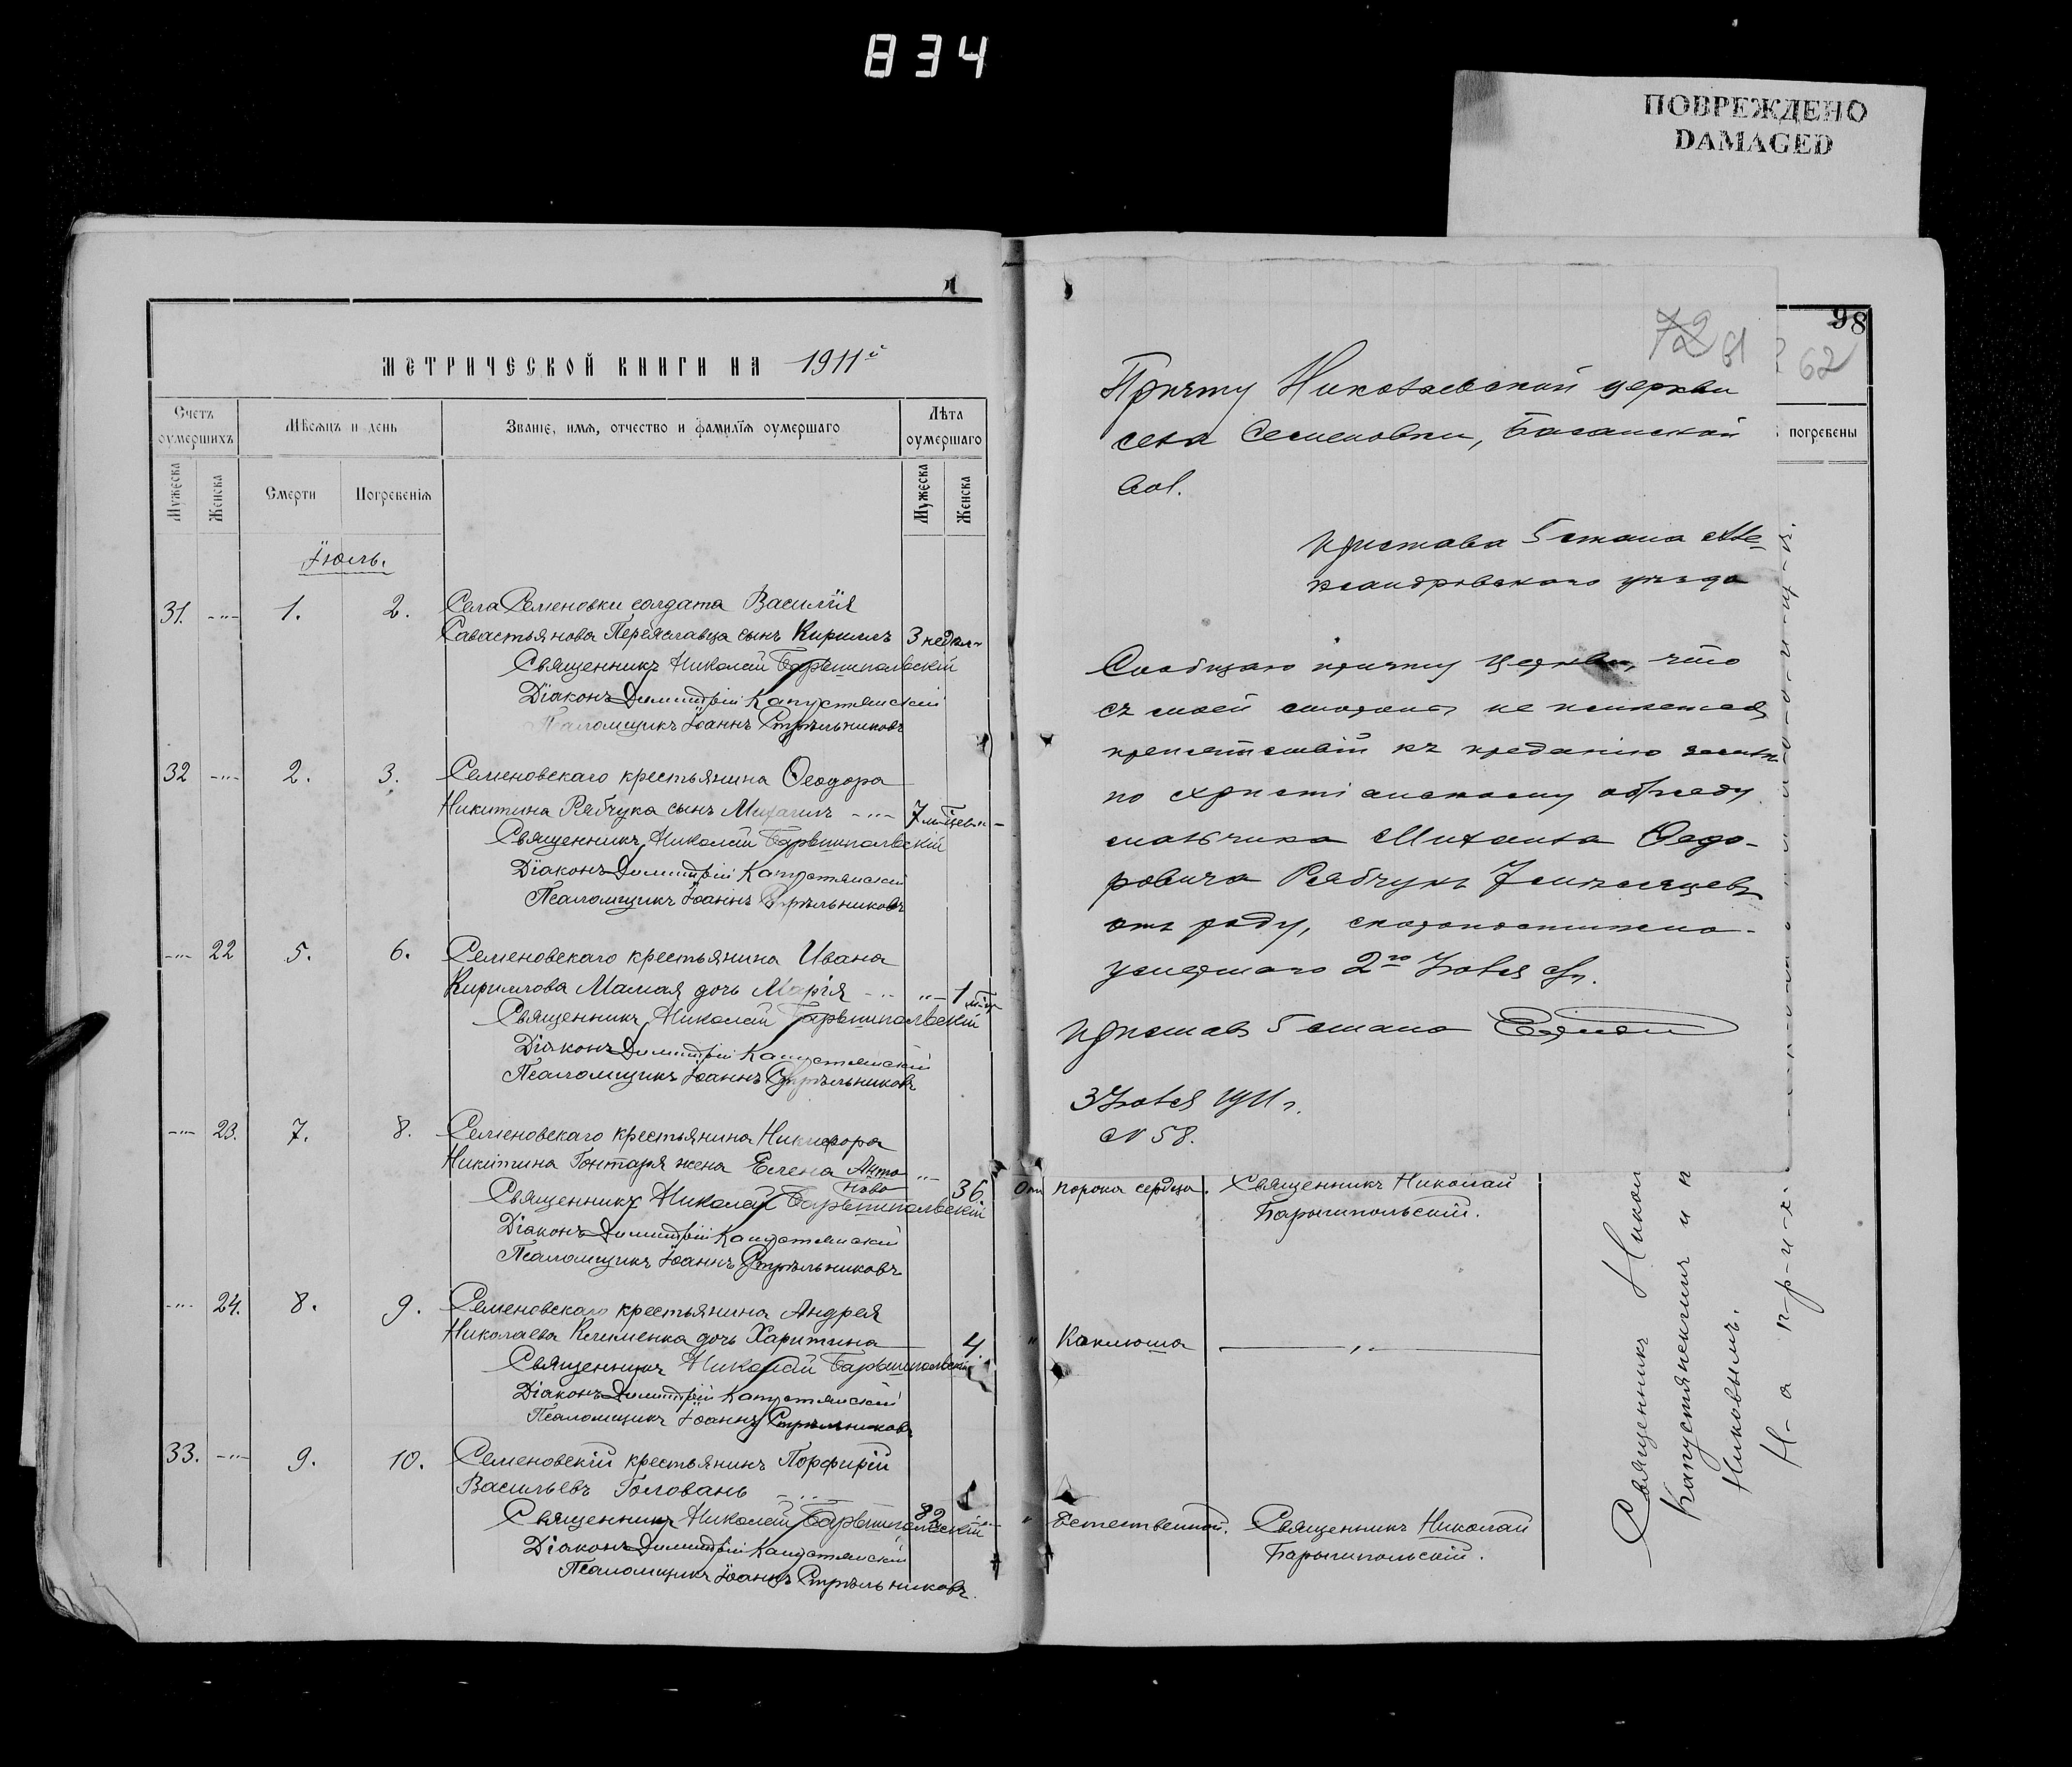 834
ПОВРЕЖДЕНО
DAMAGED
МЕТРИЧЕСКОЙ КНИГИ НА 1911й
Счетъ оумершихъ
Мѣсяцъ и день
Званіе, имя, отчество и фамилїя оумершаго
Лѣта оумершаго
Мужеска
Женска
Смерти
Погребенія
Мужеска
Женска
Іюль.
31. -"- 1. 2. Села Семеновки солдата Василія
Савастьянова Переяславца сынъ Кириллъ 3 недѣли
Священникъ Николай Барышпольскій
Діаконъ Димитрій Капустянскій
Псаломщикъ Іоаннъ Стрѣльниковъ
32 -"- 2. 3. Семеновскаго крестьянина Ѳеодора
Никитина Рябчука сынъ Михаилъ -"- 7 мѣсяцев.
Священникъ Николай Барышпольскій
Діаконъ Димитрій Капустянскій
Псаломщикъ Іоаннъ Стрѣльниковъ
-"- 22 5. 6. Семеновскаго крестьянина Ивана
Кириллова Мамая дочь Марія -"- 1 мѣц.
Священникъ Николай Барышпольскій
Діаконъ Димитрій Капустянскій
Псаломщикъ Іоаннъ Стрѣльниковъ
-"- 23. 7. 8. Семеновскаго крестьянина Никифора
Никитина Гонтаря жена Елена Анто
нова -"- 36.
Священникъ Николай Барышпольскій
Діаконъ Димитрій Капустянскій
Псаломщикъ Іоаннъ Стрѣльниковъ
-"- 24. 8. 9. Семеновскаго крестьянина Андрея
Николаева Клименка дочь Харитина 4.
Священникъ Николай Барышпольскій
Діаконъ Димитрій Капустянскій
Псаломщикъ Іоаннъ Стрѣльниковъ
33. -"- 9. 10. Семеновскій крестьянинъ Порфирій
Васильевъ Головань -"- 82
Священникъ Николай Барышпольскій
Діаконъ Димитрій Капустянскій
Псаломщикъ Іоаннъ Стрѣльниковъ.
98
62
погребены
72 61
Причту Николаевской церкви
села Семеновки, Басанской
вол.
Пристава 5 стана Але-
ксандровскаго уѣзда
Сообщаю причту церкви, что
съ моей стороны не имѣется
препятствій къ преданію землѣ
по христіанскому обряду
мальчика Михаила Ѳедо-
ровича Рябчукъ 7 мѣсяцевъ
отъ роду, скоропостижно-
умершаго 2го Іюля с/г.
Приставъ 5 стана
3 Іюля 1911 г.
№ 58.
Отъ порока сердца. Священникъ Николай
Барышпольскій.
" Коклюша — " —
" Естественной. Священникъ Николай
Барышпольскій.
Священникъ Никол
Капустянскимъ и п
никовымъ.
Н-а п-р-и-х-